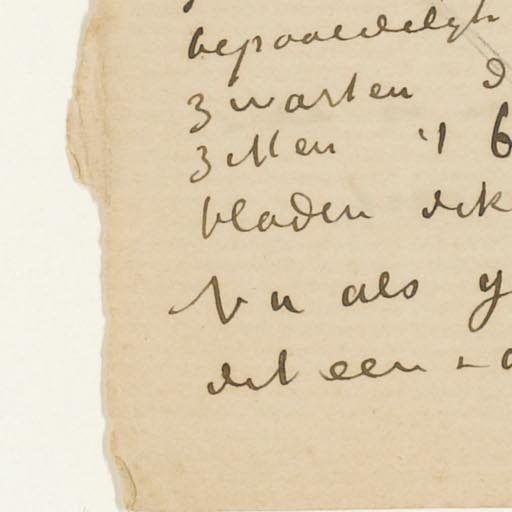 bepaaldelijk
zwarten d
zitten 't b
bladen dik
Nu als g
dit een